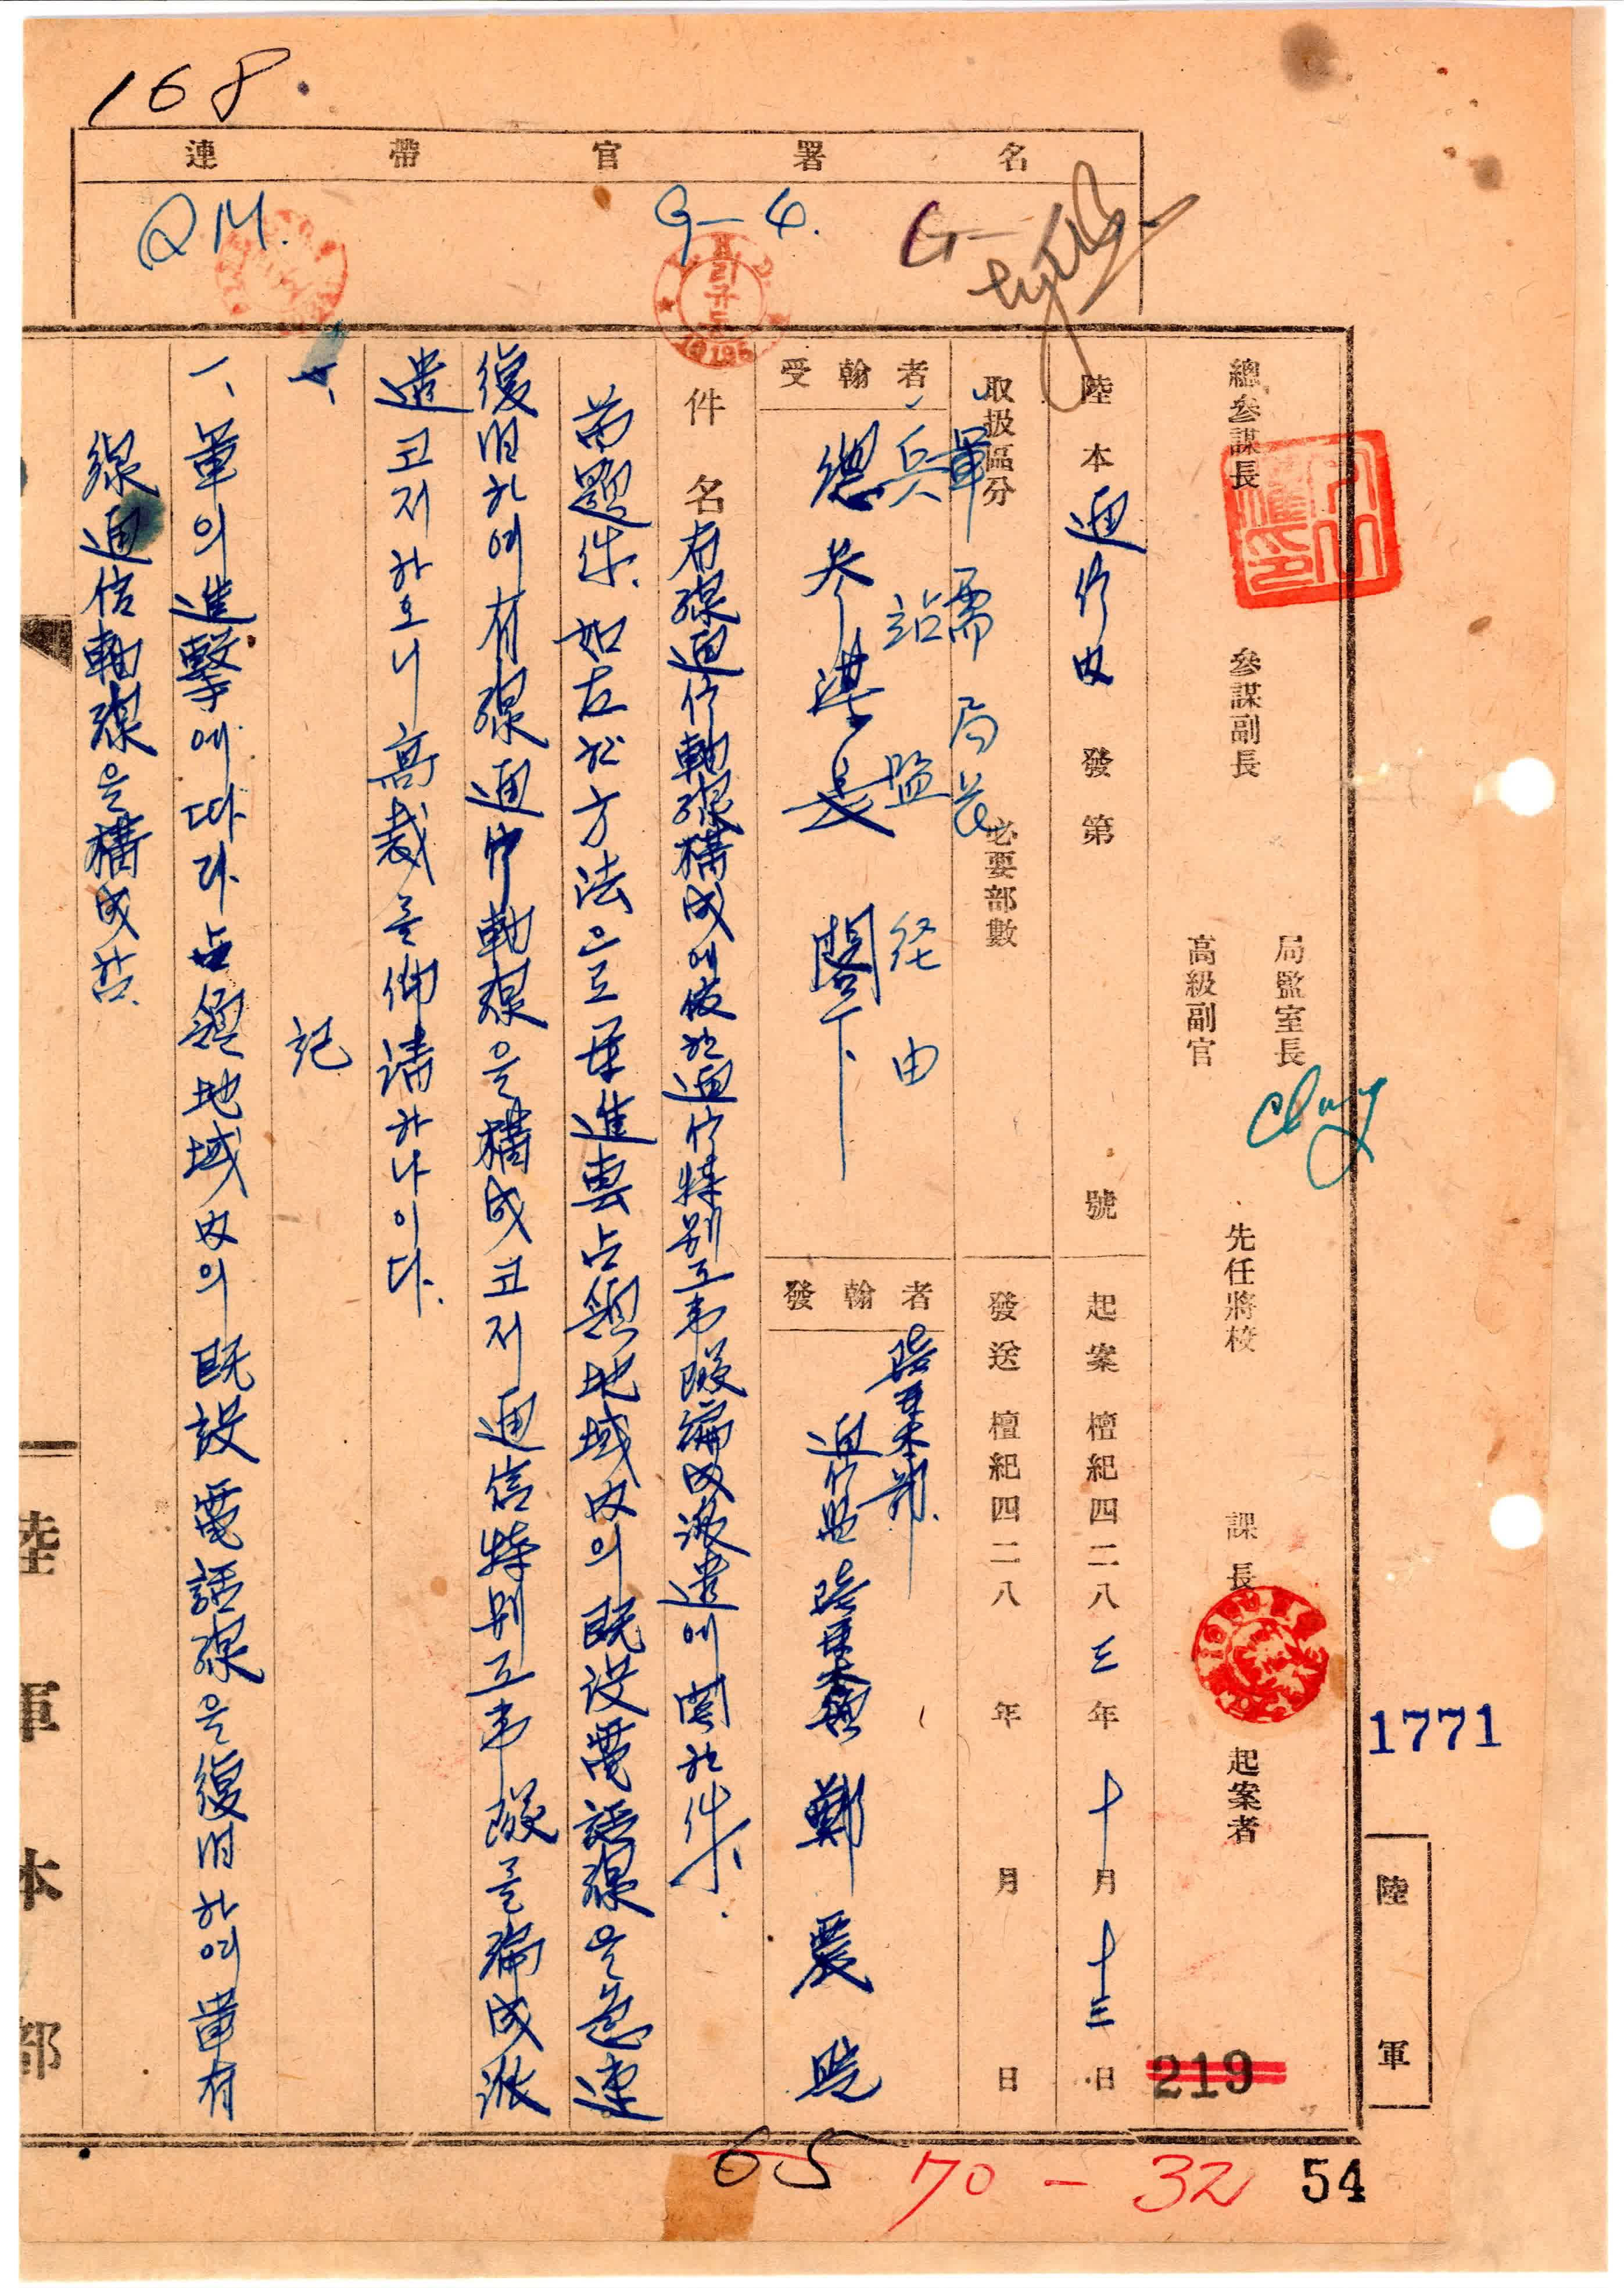 168.
連帶官署名
QM.
G-4.
G-
總參謀長 參謀副長 局監室長 高級副官 先任將校 課長 起案者
陸本通信內發第 號 起案 檀紀四二八三年十月十三日
取扱區分 必要部數 發送 檀紀四二八 年 月 日
軍需局長
兵站監 経由
受翰者 總参謀長 閣下
發翰者 陸軍本部
通信監 陸軍大領 鄭震晥
件名 有線通信軸線構成에依한通信特別工事隊編成派遣에関한件
首題件、如左한方法으로軍進軍占領地域內의既設電話線을急速
復旧하여有線通信軸線을構成코저通信特別工事隊를編成派
遣코저하오니高裁를仰請하나이다.
記
一、軍의進擊에따라占領地域內의既設電話線을復旧하여軍有
線通信軸線을構成함.
陸軍本部
陸軍
1771
219
65
70-32
54